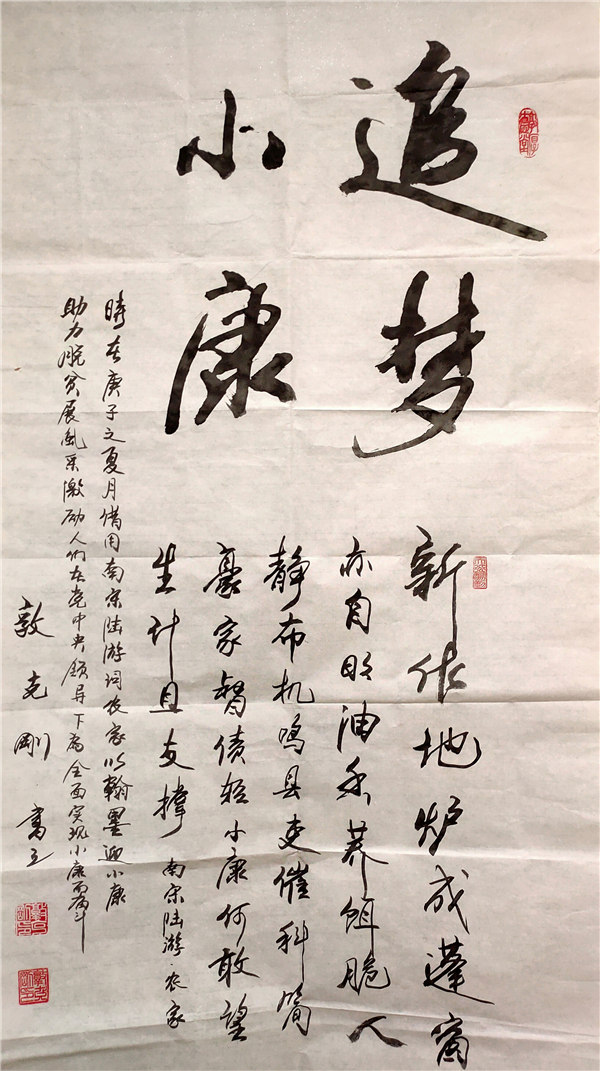 追梦
小康
新作地炉成蓬窗
亦自明油香荞饵脆人
静布机鸣县吏催科简
豪家督债轻小康何敢望
生计且支撑 南宋陆游·农家
時在庚子之夏月借用南宋陆游词农家以翰墨迎小康
助力脱贫展風采激励人们在党中央领导下為全面实现小康而奋斗
敦克剛 書